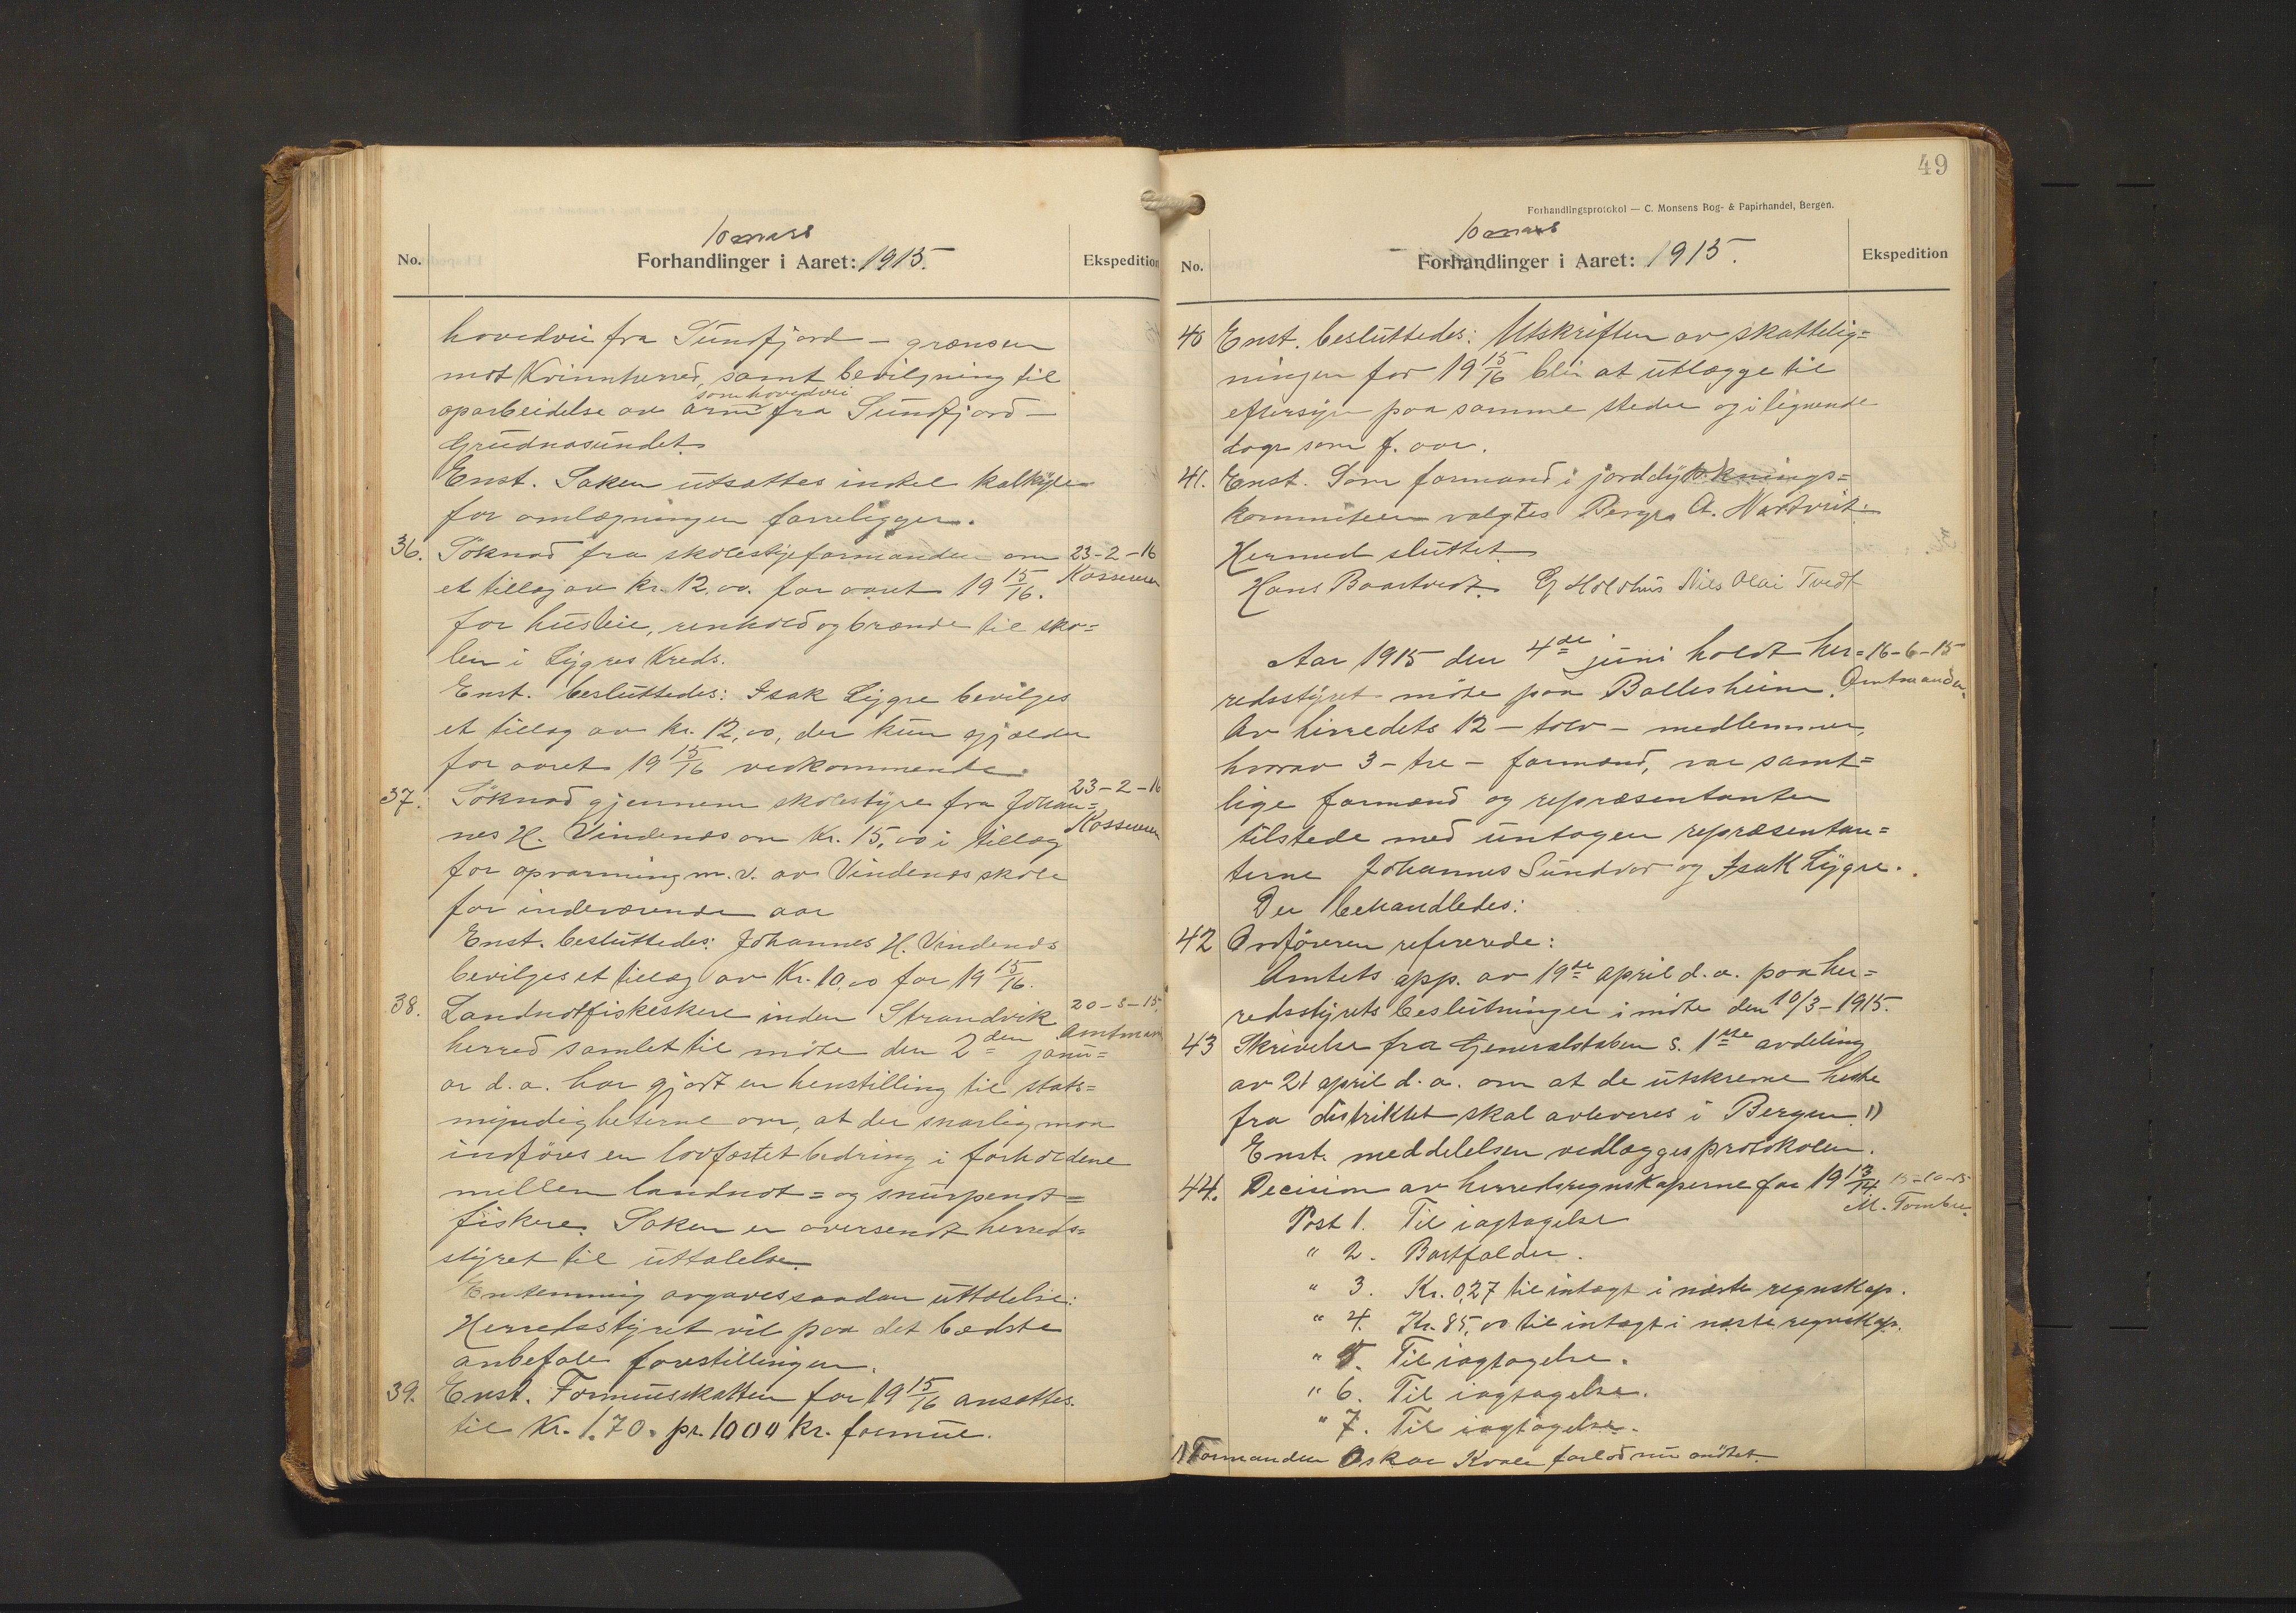 10 mars
No. Forhandlinger i Aaret: 1915. Ekspedition
hovedvei fra Sundfjord - grænsen
mot Kvinnherred, samt bevilgning til
oparbeidelse av arm som hovedvei fra Sundfjord -
Grudnasundet.
Enst. Saken utsattes indtil kalkyle
for omlægningen foreligger.
36. Söknad fra skolestyreformanden om 23-2-16
et tillæg av kr. 12,00. for aaret 19 15/16. Kasseren
for husleie, renhold og brænde til sko=
len i Lygres Kreds.
Enst. besluttedes: Isak Lygre bevilges
et tillæg av kr. 12,00, der kun gjælder
for aaret 19 15/16 vedkommende.
37. Söknad gjennem skolestyre fra Johan= 23-2-16
nes H. Vindenes om Kr. 15,00 i tillæg Kasseren
for opvarming m. v. av Vindenes skole
for indeværende aar
Enst. besluttedes: Johannes H. Vindenes
bevilges et tillæg av Kr. 10,00 for 19 15/16.
38. Landnotfiskeskere inden Strandvik 20-3-15.
herred samlet til möte den 2den janu= Amtmand
ar d.a. har gjort en henstilling til stats=
myndigheterne om, at der snarlig maa
indföres en lovfæstet bedring i forholdene
mellem landnot= og snurpenot=
fiskere. Saken er oversendt herreds=
styret til uttalelse.
Enstemmig avgaves saadan uttalelse:
Herredsstyret vil paa det bedste
anbefale forestillingen.
39. Enst. Formuesskatten for 19 15/16 ansattes
til Kr. 1.70. pr. 1000 kr. formue.
49
Forhandlingsprotokol — C. Monsens Bog- & Papirhandel, Bergen.
10 mars
No. Forhandlinger i Aaret: 1915. Ekspedition
40 Enst. besluttedes: Utskriften av skattelig=
ningen for 19 15/16 blir at utlægge til
eftersyn paa samme steder og i lignende
dage som f. aar.
41. Enst. Som formand i jorddyrknings=
kommiteen valgtes Berge A. Nordtveit.
Hermed sluttet
Hans Baartvedt. G Holdhus Nils Olai Tvedt
Aar 1915 den 4de juni holdt her= 16-6-15
redsstyret möte paa Ballesheim. Amtmanden.
Av herredets 12 - tolv - medlemmer,
hvorav 3 - tre - formænd, var samt=
lige formænd og repræsentanter
tilstede med untagen repræsentan=
terne Johannes Sundvor og Isak Lygre.
Der behandledes:
42 Ordföreren refererede:
Amtets app. av 19de april d.a. paa her=
redsstyrets beslutninger i möte den 10/3-1915.
43 Skrivelse fra Generalstaben s. 1ste avdeling
av 21 april d.a. om at de utskrevne heste
fra distriktet skal avleveres i Bergen. 1)
Enst. meddelelsen vedlægges protokolen.
44. Decision av herredsregnskaperne for 19 13/14 15-10-15
Post 1. Til iagtagelse M. Tombre.
" 2. Bortfalder.
" 3. Kr. 0,27 til intægt i næste regnskap.
" 4. Kr. 85,00 til intægt i næste regnskap.
" 5. Til iagtagelse.
" 6. Til iagtagelse.
" 7. Til iagtagelse.
1) Formanden Oskar Kvale forlod nu mötet.